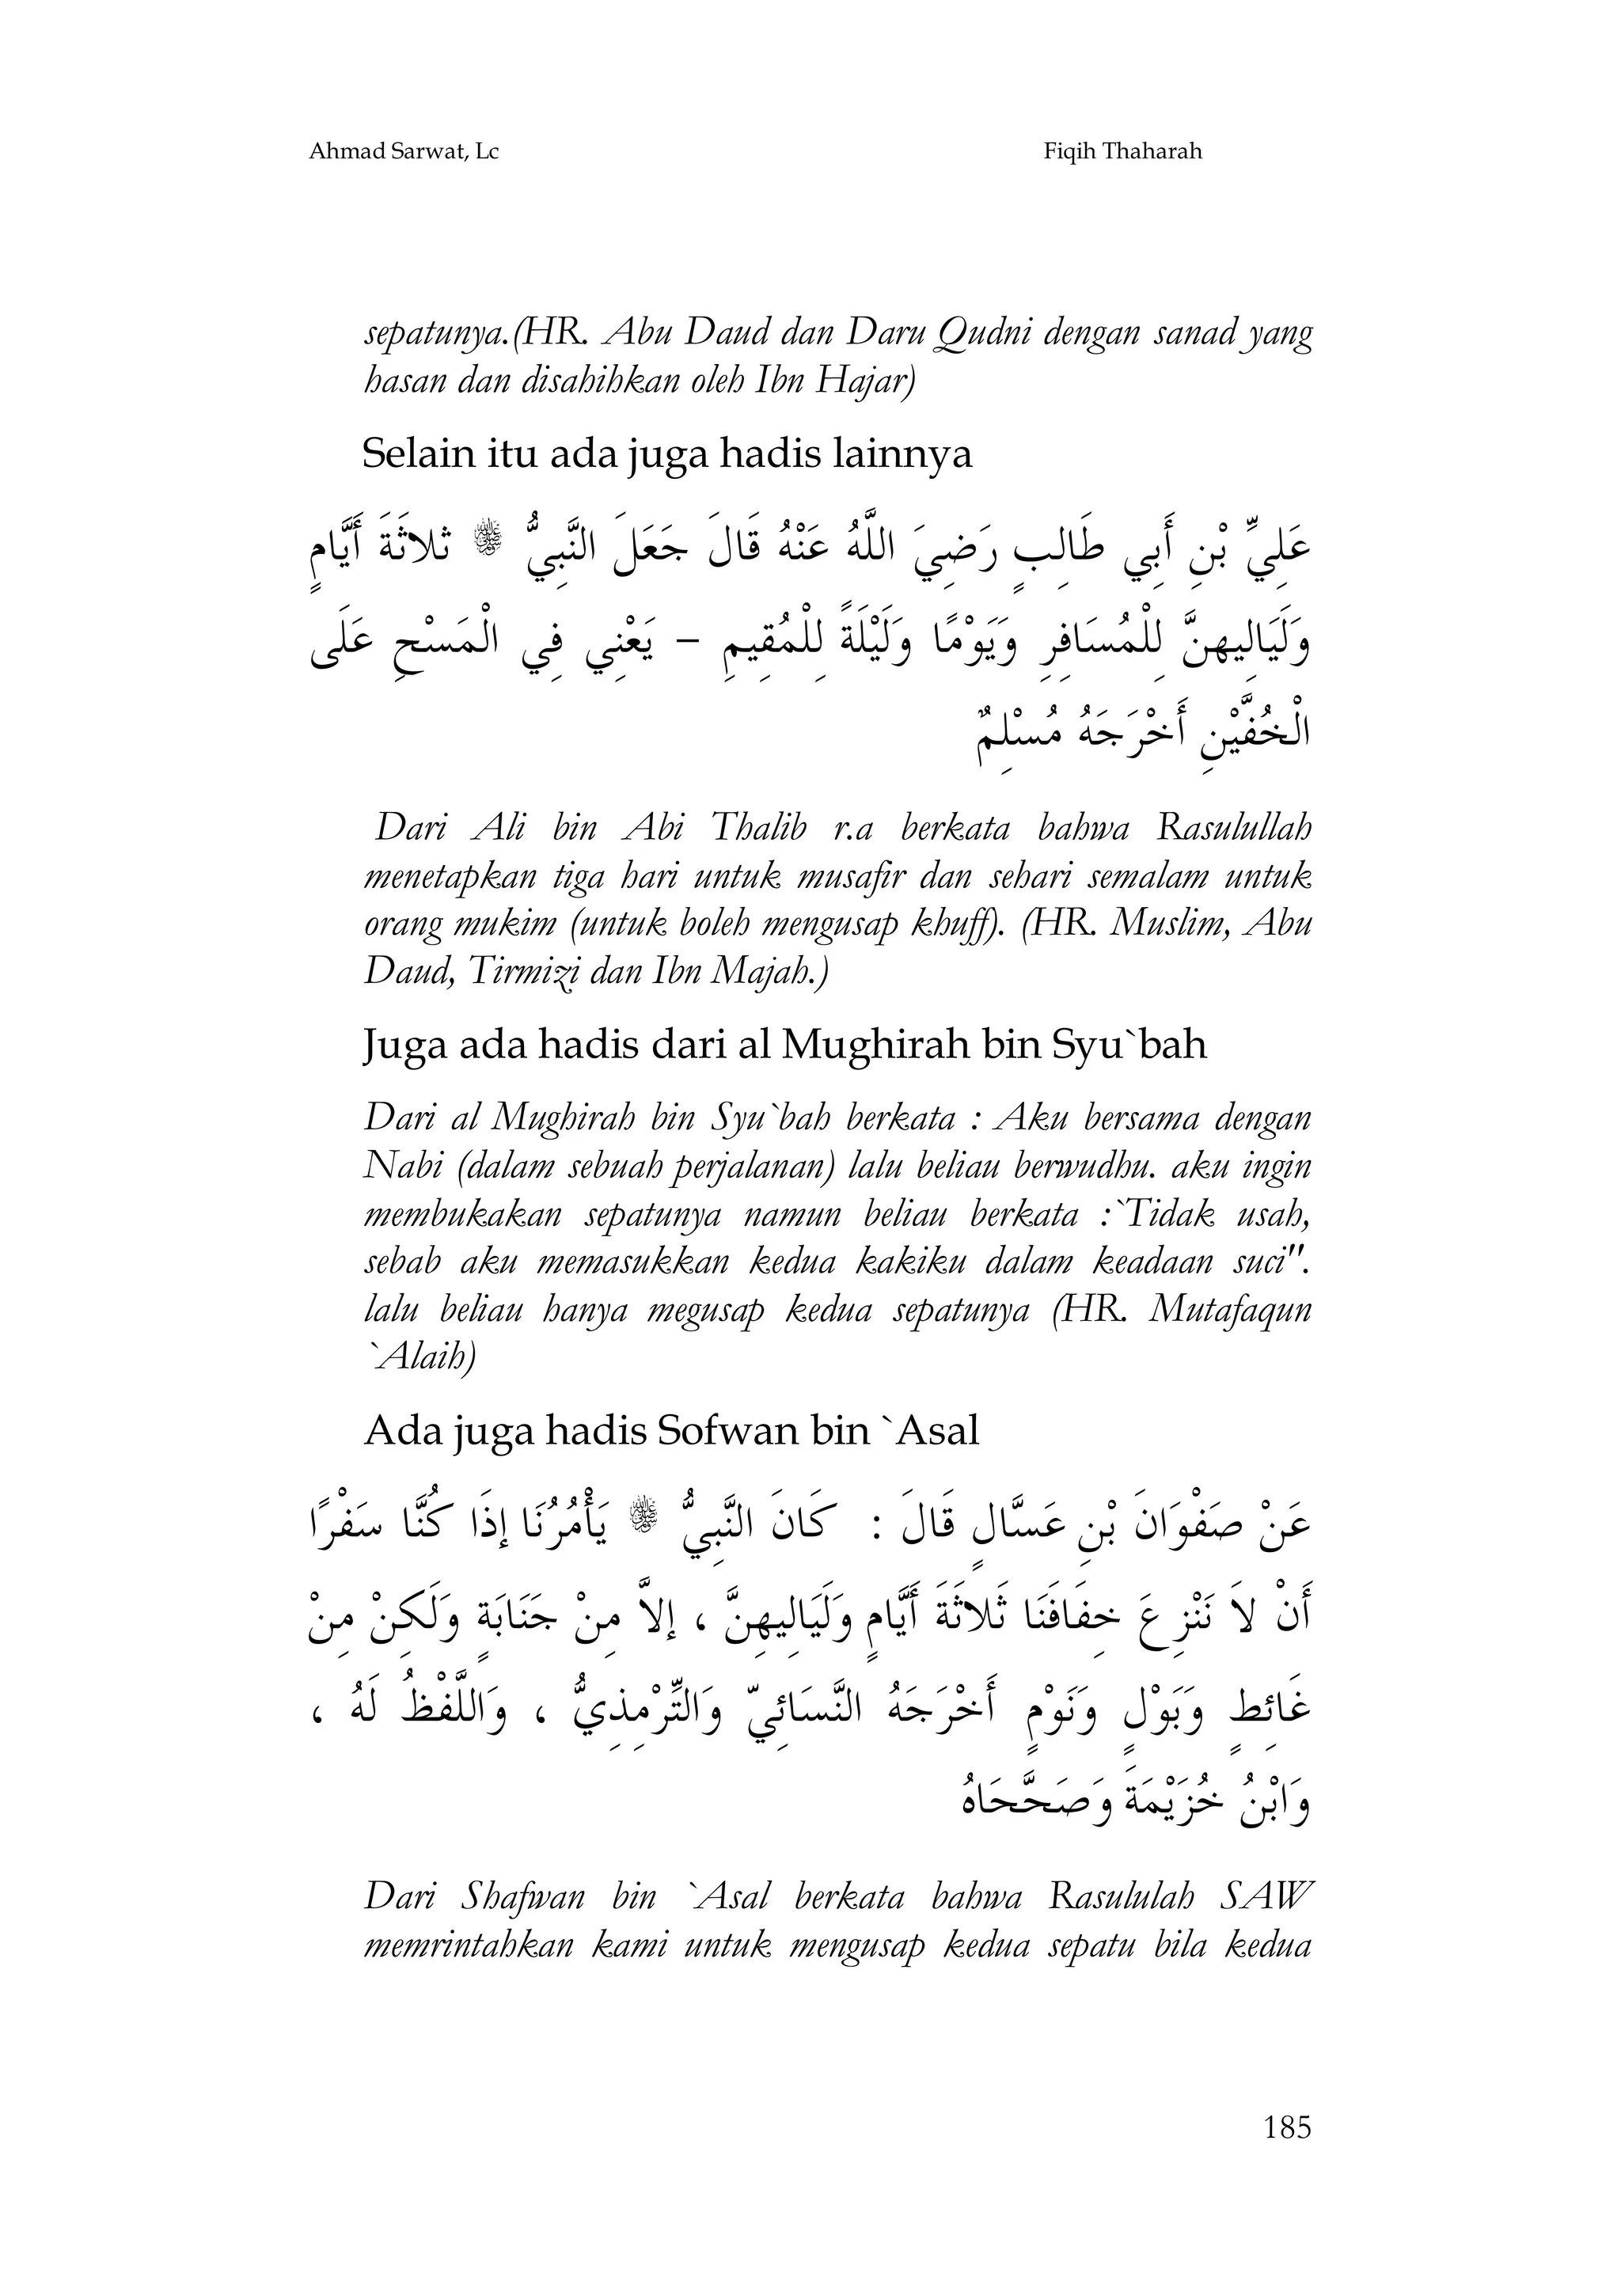 Ahmad Sarwat, Lc Fiqih Thaharah
sepatunya.(HR. Abu Daud dan Daru Qudni dengan sanad yang
hasan dan disahihkan oleh Ibn Hajar)
Selain itu ada juga hadis lainnya
عَلِيِّ بْنِ أَبِي طَالِبٍ رَضِيَ اللَّهُ عَنْهُ قَالَ جَعَلَ النَّبِيُّ ﷺ ثلاثَةَ أَيَّامٍ
وَلَيَالِيهنَّ لِلْمُسَافِرِ وَيَوْمًا وَلَيْلَةً لِلْمُقِيمِ – يَعْنِي فِي الْمَسْحِ عَلَى
الْخُفَّيْنِ أَخْرَجَهُ مُسْلِمٌ
Dari Ali bin Abi Thalib r.a berkata bahwa Rasulullah
menetapkan tiga hari untuk musafir dan sehari semalam untuk
orang mukim (untuk boleh mengusap khuff). (HR. Muslim, Abu
Daud, Tirmizi dan Ibn Majah.)
Juga ada hadis dari al Mughirah bin Syu`bah
Dari al Mughirah bin Syu`bah berkata : Aku bersama dengan
Nabi (dalam sebuah perjalanan) lalu beliau berwudhu. aku ingin
membukakan sepatunya namun beliau berkata :`Tidak usah,
sebab aku memasukkan kedua kakiku dalam keadaan suci".
lalu beliau hanya megusap kedua sepatunya (HR. Mutafaqun
`Alaih)
Ada juga hadis Sofwan bin `Asal
عَنْ صَفْوَانَ بْنِ عَسَّالٍ قَالَ : كَانَ النَّبِيُّ ﷺ يَأْمُرُنَا إِذَا كُنَّا سَفْرًا
أَنْ لاَ نَنْزِعَ خِفَافَنَا ثَلاثَةَ أَيَّامٍ وَلَيَالِيهِنَّ ، إِلاَّ مِنْ جَنَابَةٍ وَلَكِنْ مِنْ
غَائِطٍ وَبَوْلٍ وَنَوْمٍ أَخْرَجَهُ النَّسَائِيّ وَالتِّرْمِذِيُّ ، وَاللَّفْظُ لَهُ ،
وَابْنُ خُزَيْمَةَ وَصَحَّحَاهُ
Dari Shafwan bin `Asal berkata bahwa Rasululah SAW
memrintahkan kami untuk mengusap kedua sepatu bila kedua
185